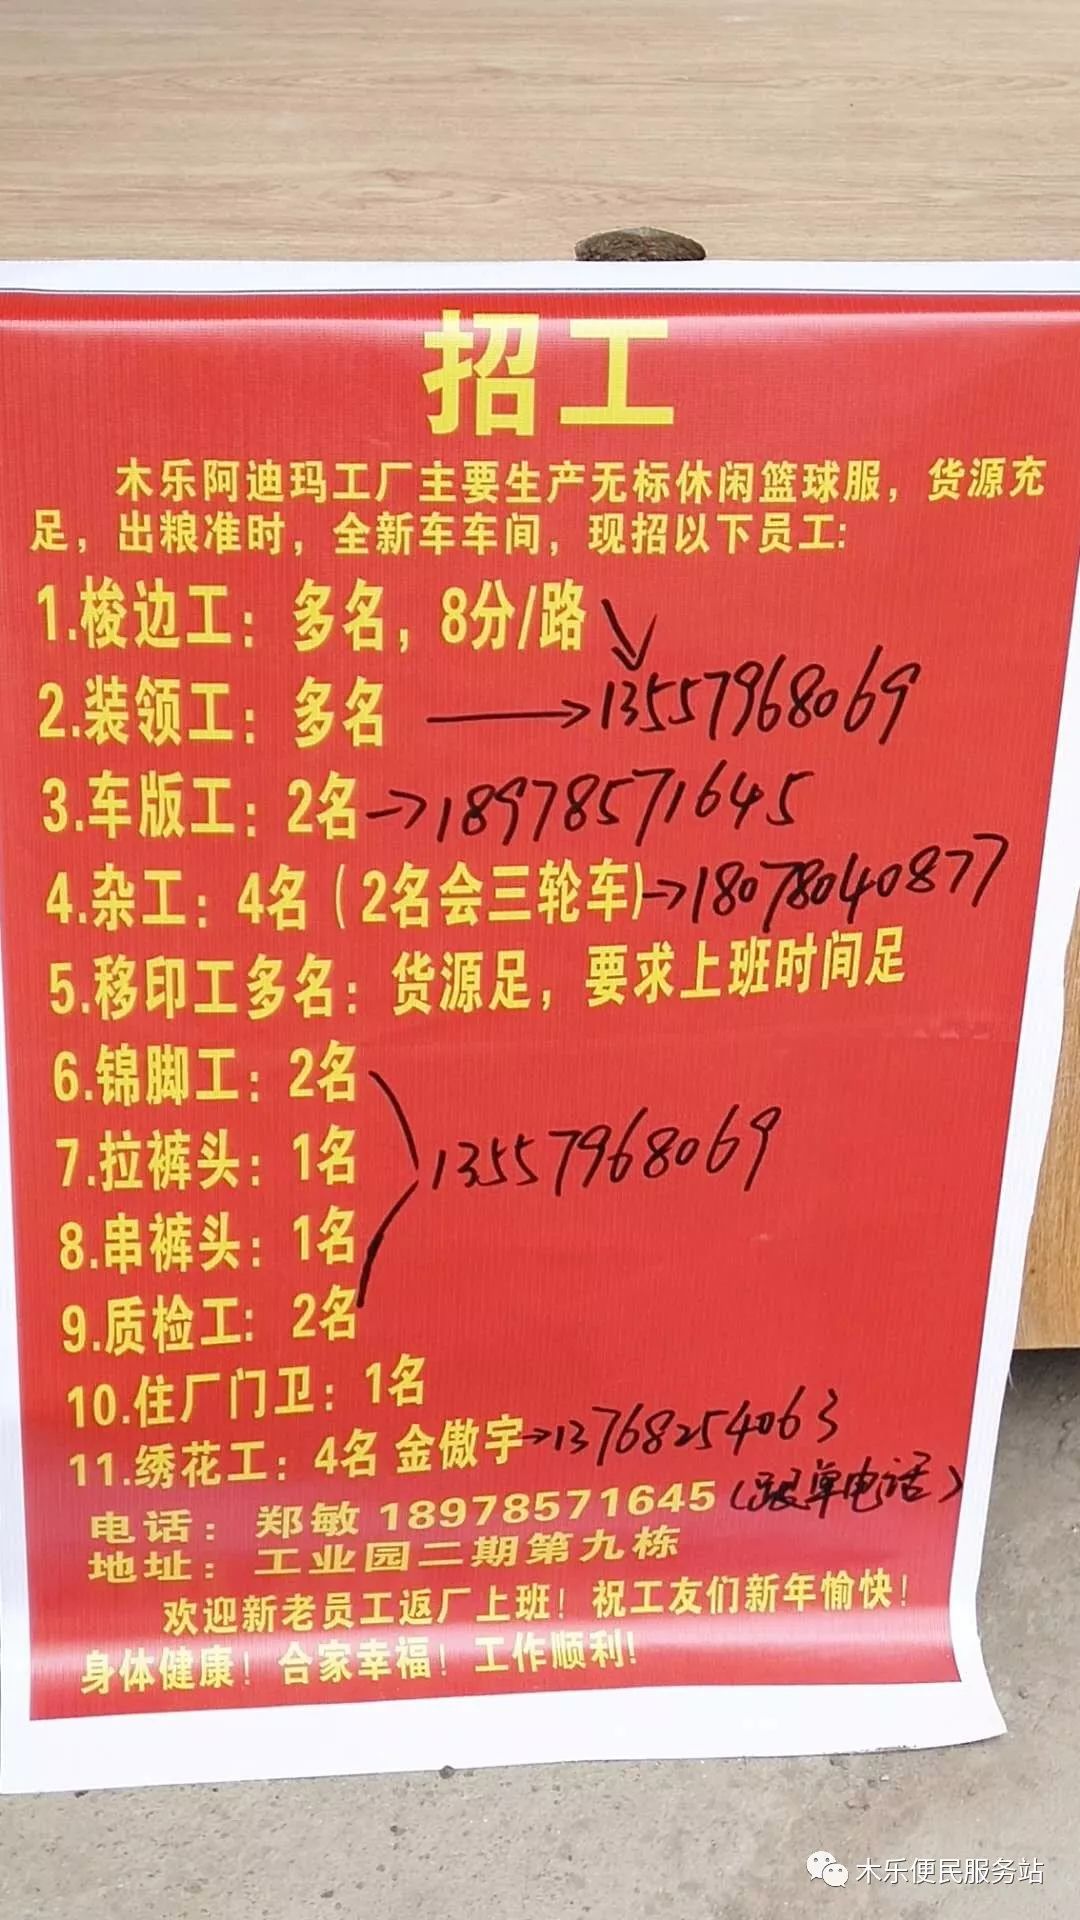 招工
木乐阿迪玛工厂主要生产无标休闲篮球服，货源充
足，出粮准时，全新车车间，现招以下员工：
1.梭边工：多名，8分/路
2.装领工：多名 → 13557968069
3.车版工：2名 → 18978571645
4.杂工：4名（2名会三轮车）→ 18078040877
5.移印工多名：货源足，要求上班时间足
6.锦脚工：2名
7.拉裤头：1名 13557968069
8.串裤头：1名
9.质检工：2名
10.住厂门卫：1名
11.绣花工：4名 金傲宇 → 13768254063
电话：郑敏 18978571645（跟单电话）
地址：工业园二期第九栋
欢迎新老员工返厂上班！祝工友们新年愉快！
身体健康！合家幸福！工作顺利！
木乐便民服务站